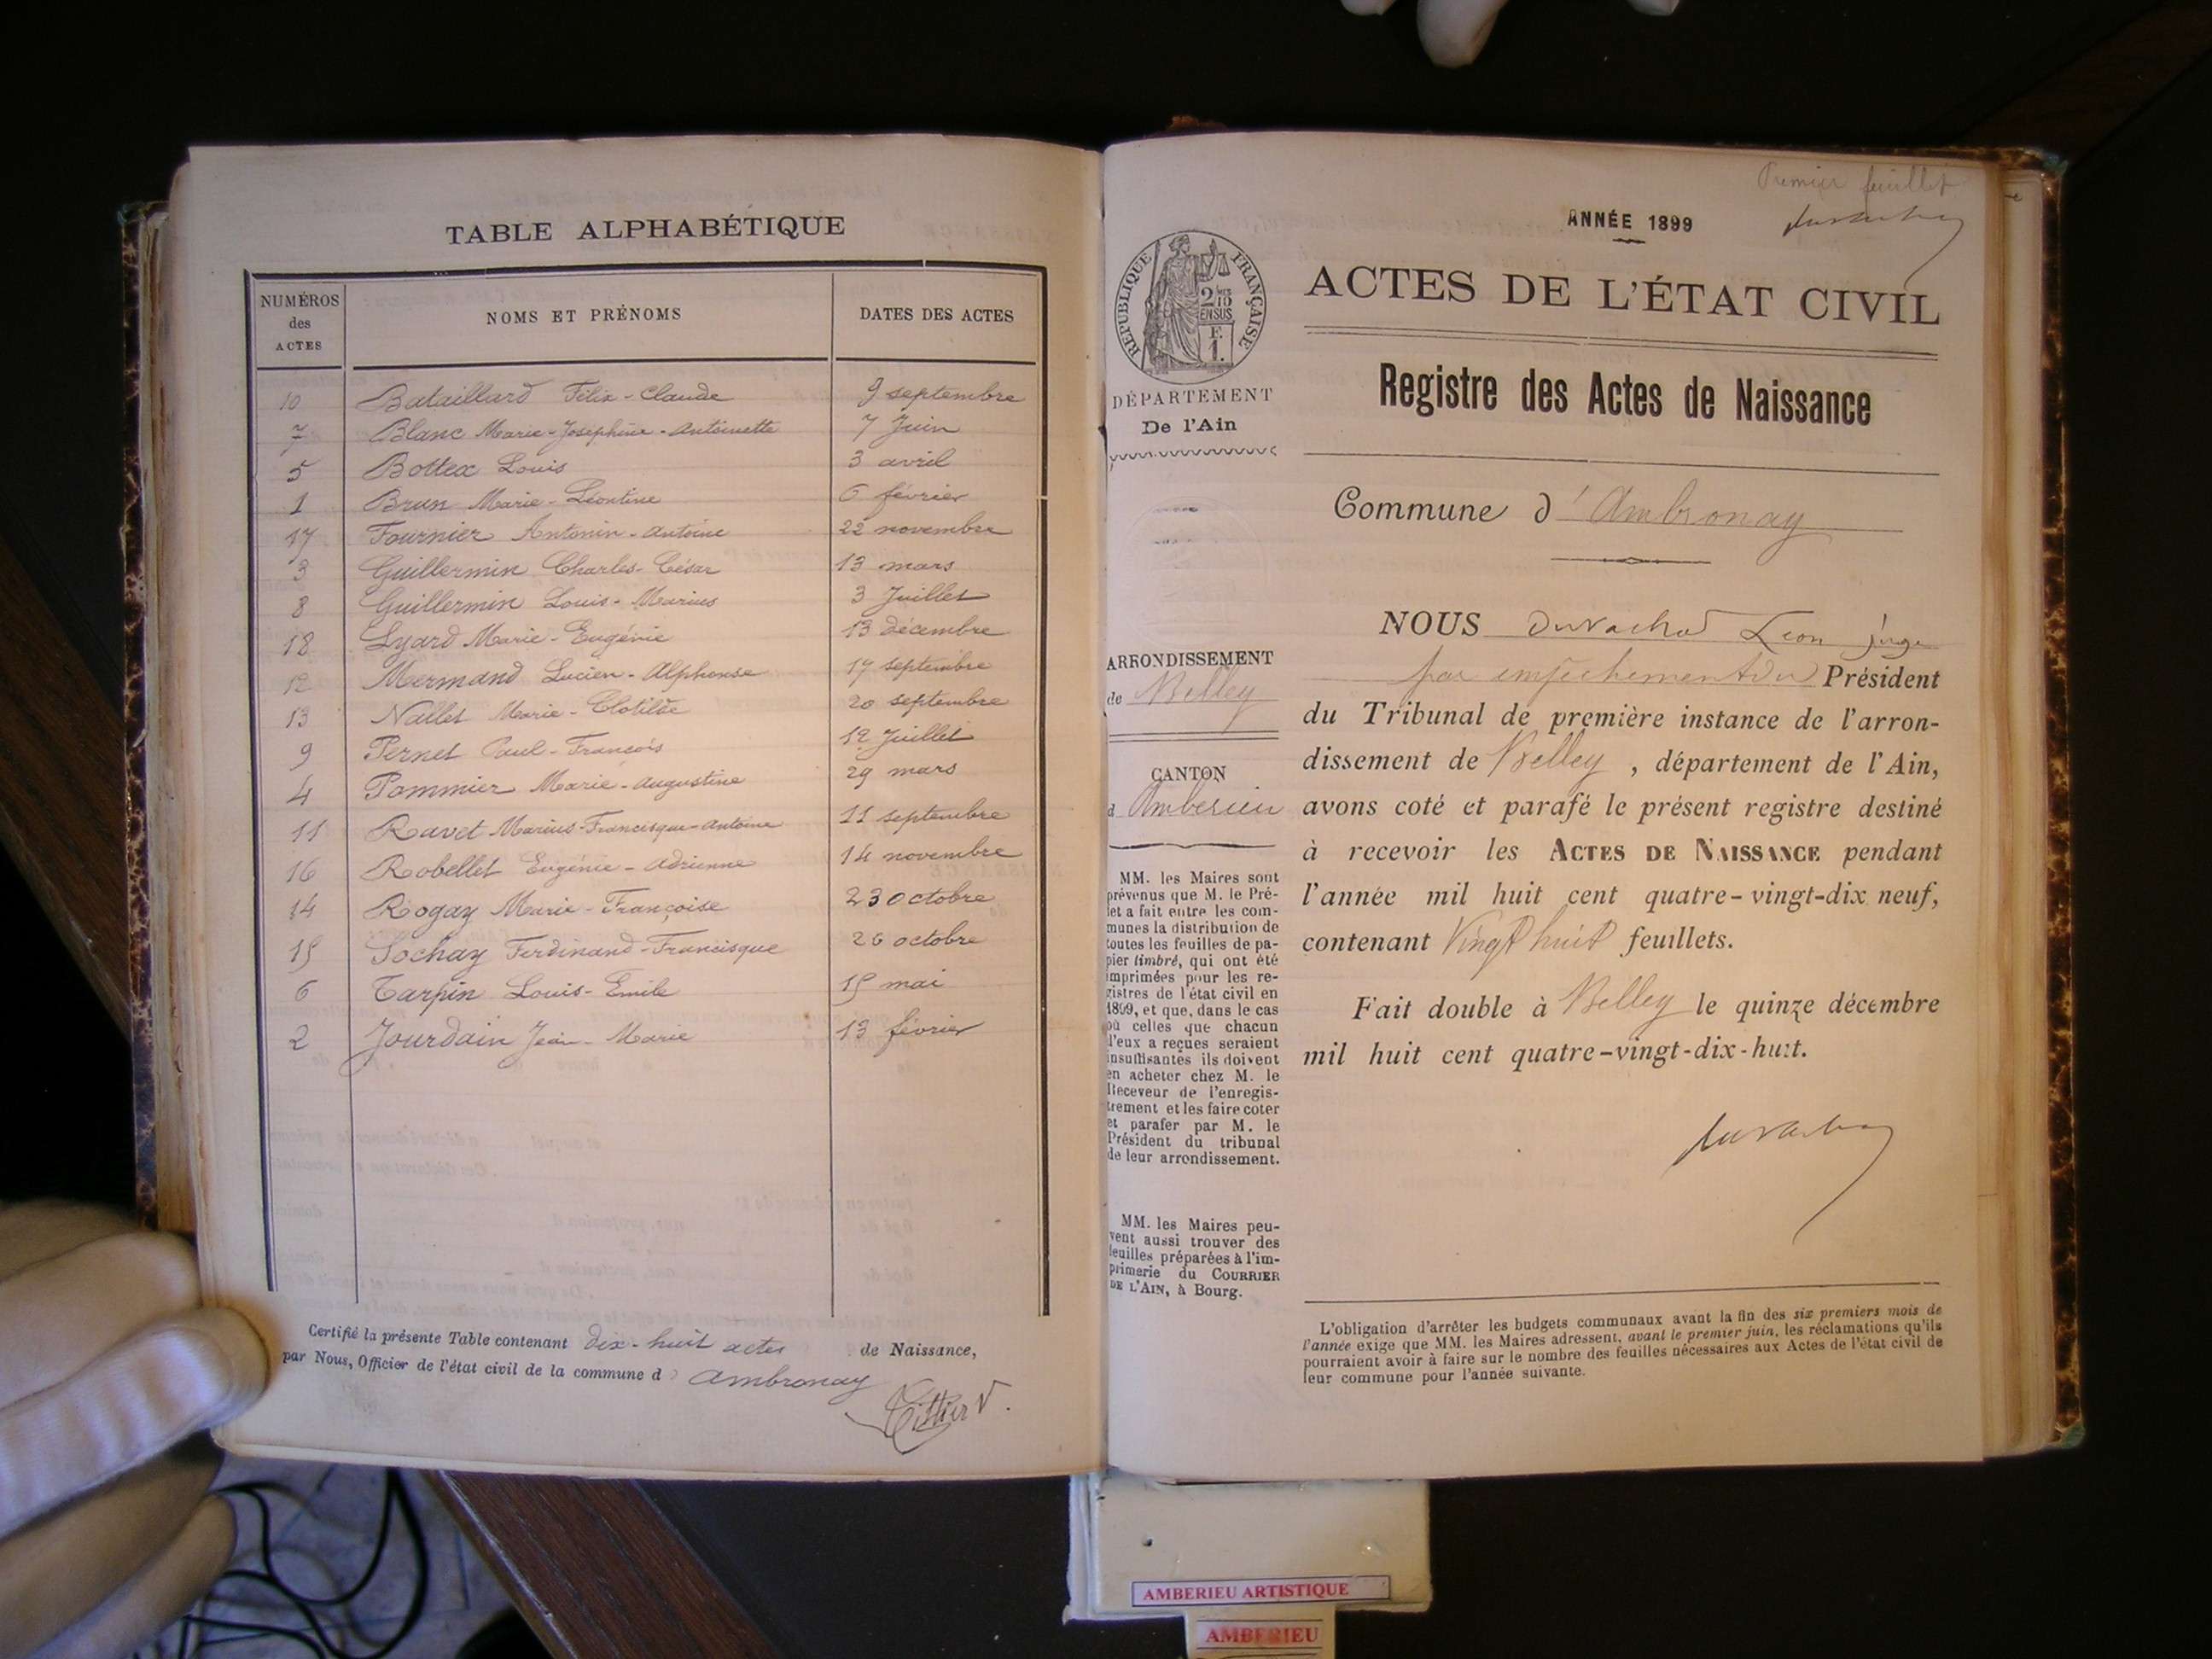 TABLE ALPHABÉTIQUE
NUMÉROS des ACTES
NOMS ET PRÉNOMS
DATES DES ACTES
10 Bataillard Félix-Claude 9 septembre
7 Blanc Marie-Joséphine-Antoinette 7 Juin
5 Bottex Louis 3 avril
1 Brun Marie-Léontine 6 février
17 Fournier Antonin-Antoine 22 novembre
3 Guillermin Charles-César 13 mars
8 Guillermin Louis-Marius 3 Juillet
18 Lyard Marie-Eugénie 13 décembre
12 Mermand Lucien-Alphonse 17 septembre
13 Nallet Marie-Clotilde 20 septembre
9 Pernet Paul-François 12 Juillet
4 Pommier Marie-Augustine 29 mars
11 Ravet Marius-Francisque-Antoine 11 septembre
16 Robellet Eugénie-Adrienne 14 novembre
14 Rogay Marie-Françoise 23 octobre
15 Sochay Ferdinand-Francisque 26 octobre
6 Tarpin Louis-Emile 15 mai
2 Jourdain Jean-Marie 13 février
Certifié la présente Table contenant dix-huit actes de Naissance,
par Nous, Officier de l'état civil de la commune d' Ambronay
Premier feuillet
ANNÉE 1899
RÉPUBLIQUE FRANÇAISE
2/10 EN SUS
F.
1.
ACTES DE L'ÉTAT CIVIL
Registre des Actes de Naissance
DÉPARTEMENT
De l'Ain
Commune d'Ambronay
ARRONDISSEMENT
de Belley
CANTON
d Amberieu
MM. les Maires sont
prévenus que M. le Pré-
fet a fait entre les com-
munes la distribution de
toutes les feuilles de pa-
pier timbré, qui ont été
imprimées pour les re-
gistres de l'état civil en
1899, et que, dans le cas
où celles que chacun
d'eux a reçues seraient
insuffisantes ils doivent
en acheter chez M. le
Receveur de l'enregis-
trement et les faire coter
et parafer par M. le
Président du tribunal
de leur arrondissement.
MM. les Maires peu-
vent aussi trouver des
feuilles préparées à l'im-
primerie du COURRIER
DE L'AIN, à Bourg.
NOUS Léon juge
par empêchement du Président
du Tribunal de première instance de l'arron-
dissement de Belley , département de l'Ain,
avons coté et parafé le présent registre destiné
à recevoir les ACTES DE NAISSANCE pendant
l'année mil huit cent quatre-vingt-dix neuf,
contenant Vingt huit feuillets.
Fait double à Belley le quinze décembre
mil huit cent quatre-vingt-dix-huit.
L'obligation d'arrêter les budgets communaux avant la fin des six premiers mois de
l'année exige que MM. les Maires adressent, avant le premier juin, les réclamations qu'ils
pourraient avoir à faire sur le nombre des feuilles nécessaires aux Actes de l'état civil de
leur commune pour l'année suivante.
AMBERIEU ARTISTIQUE
AMBERIEU